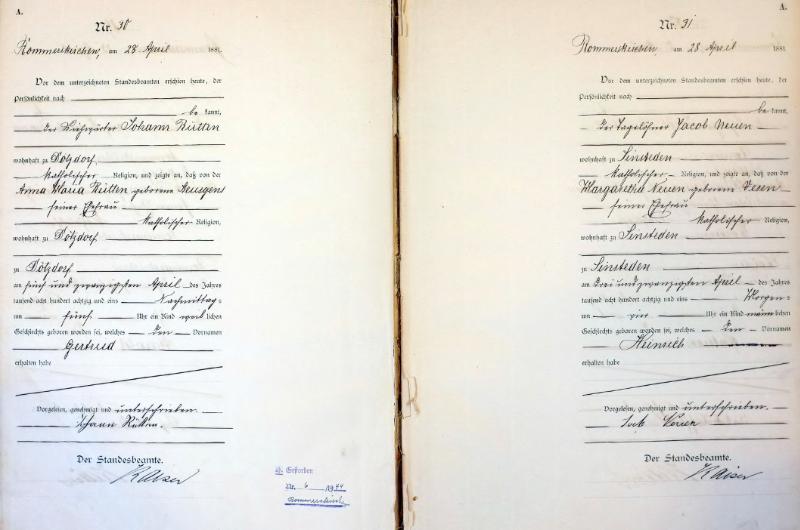 A.
Nr. 30
Rommerskirchen, am 28 April 1881.
Vor dem unterzeichneten Standesbeamten erschien heute, der
Persönlichkeit nach
be kannt,
der Johann Rütten
wohnhaft zu
katholischer Religion, und zeigte an, daß von der
Anna Maria Rütten geborene
seiner Ehefrau
katholischer Religion,
wohnhaft zu
zu
am fünf und zwanzigsten April des Jahres
tausend acht hundert achtzig und eins Nachmittag
um fünf Uhr ein Kind weiblichen
Geschlechts geboren worden sei, welches den Vornamen
Gertrud
erhalten habe
Vorgelesen, genehmigt und unterschrieben.
Rütten.
Der Standesbeamte.
Kaiser
Gestorben
Nr. 6 1944
A.
Nr. 31
Rommerskirchen am 28 April 1881
Vor dem unterzeichneten Standesbeamten erschien heute, der
Persönlichkeit nach
be kannt,
der Tagelöhner Jacob Neuen
wohnhaft zu Sinsteden
katholischer Religion, und zeigte an, daß von der
Margaretha Neuen geborene
seiner Ehefrau
katholischer Religion,
wohnhaft zu Sinsteden
zu
Sinsteden
am drei und zwanzigsten April des Jahres
tausend acht hundert achtzig und eins Morgen=
um vier Uhr ein Kind männlichen
Geschlechts geboren worden sei, welches den Vornamen
Heinrich
erhalten habe
Vorgelesen, genehmigt und unterschrieben.
Der Standesbeamte.
Kaiser